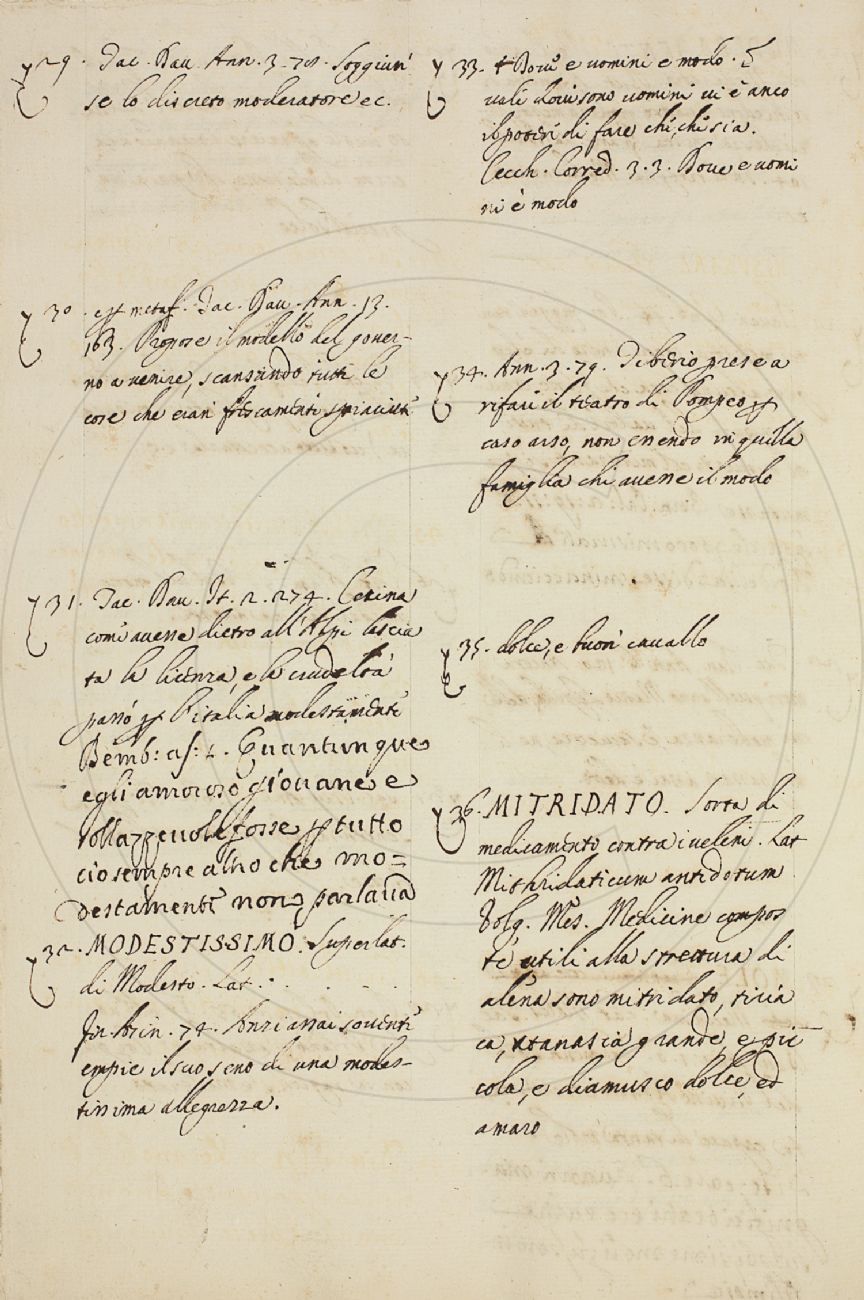 29. Tac. Dav. Ann. 3. 78. Soggiun
se lo discreto moderatore ec.
30. ꝑ metaf. Tac. Dav. Ann. 13.
163. Propose il modello del gover-
no a venire, scansando tutte le
cose che eran frescamente spiaciute
31. Tac. Dav. St. 2. 274. Cecina
come avesse dietro all'Alpi lascia
ta la licenza, e la crudeltà
passò ꝑ l'italia modestamente
Bemb: as: 2. Quantunque
egli amoroso giovane e
sollazzevole fosse ꝑ tutto
cio sempre altro che mo=
destamente non parlava
32. MODESTISSIMO. Superlat.
di Modesto. Lat. . . . .
74. Anzi assai sovente
empie il suo seno di una modes-
tissima allegrezza.
33. Dove e uomini e modo.
vale Dove sono uomini vi è anco
il poter di fare chi, chi sia.
Cecch. Corred. 3. 3. Dove e uomi
ni è modo
34. Ann. 3. 79. Tiberio prese a
rifare il teatro di Pompeo ꝑ
caso arso, non essendo in quella
famiglia chi avesse il modo
35. dolce, e buon cavallo
36. MITRIDATO. Sorta di
medicamento contra i veleni. Lat
Mithridaticum antidotum
Volg. Mes. Medicine compos
te utili alla strettura di
alena sono mitridato, tiria
ca, atanasia grande, e pic
cola, e diamusco dolce, ed
amaro